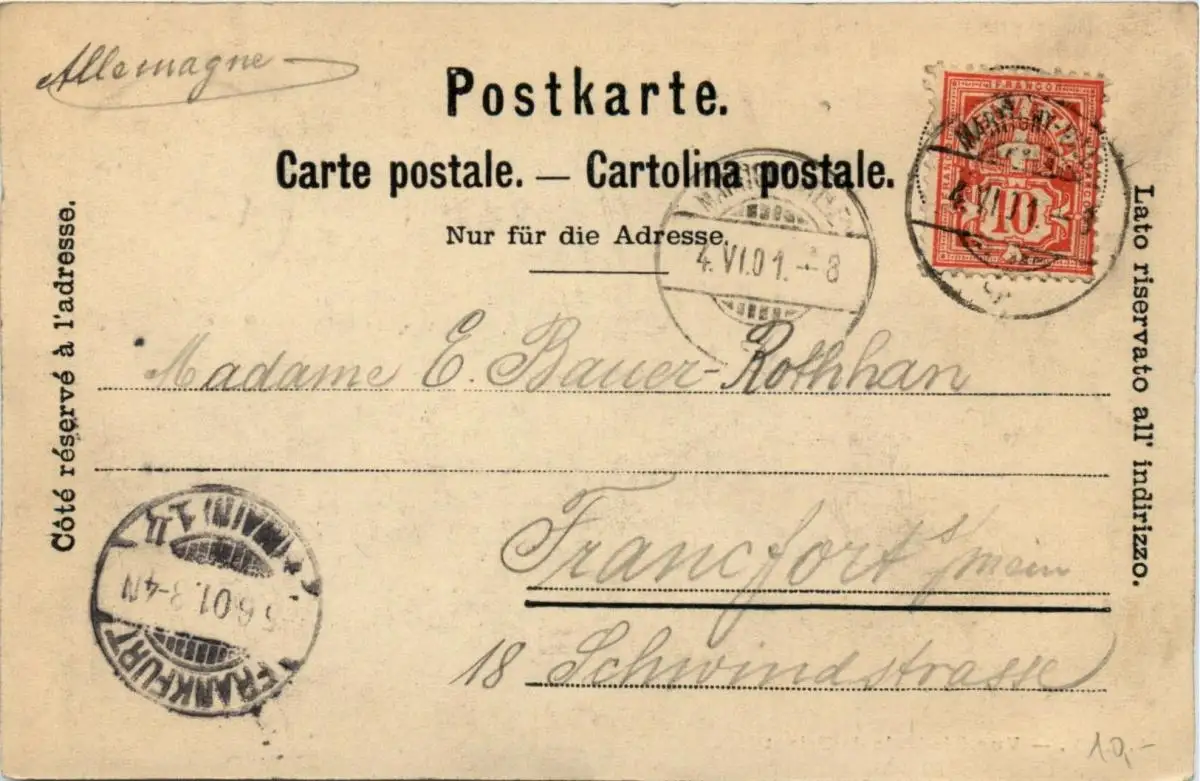 Allemagne
Postkarte.
Carte postale. — Cartolina postale.
Nur für die Adresse.
Côté réservé à l'adresse.
Lato riservato all' indirizzo.
FRANCO
10
4.VI.01.-8
4.VI.01.-8
Madame E. Bauer-Rothhan
Francfort s/mein
18 Schwindstrasse
FRANKFURT (MAIN) 1.
6.01.3-4N
10,-